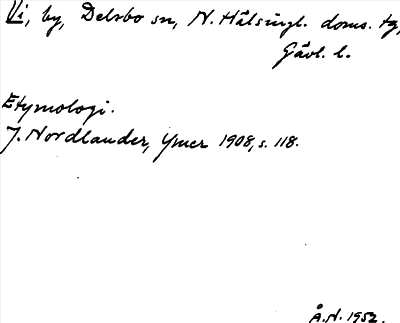 Vi, by, Delsbo sn, N. Hälsingl. doms. tg,
Gävl. l.
Etymologi.
J. Nordlander, Ymer 1908, s. 118.
Å.N. 1952.